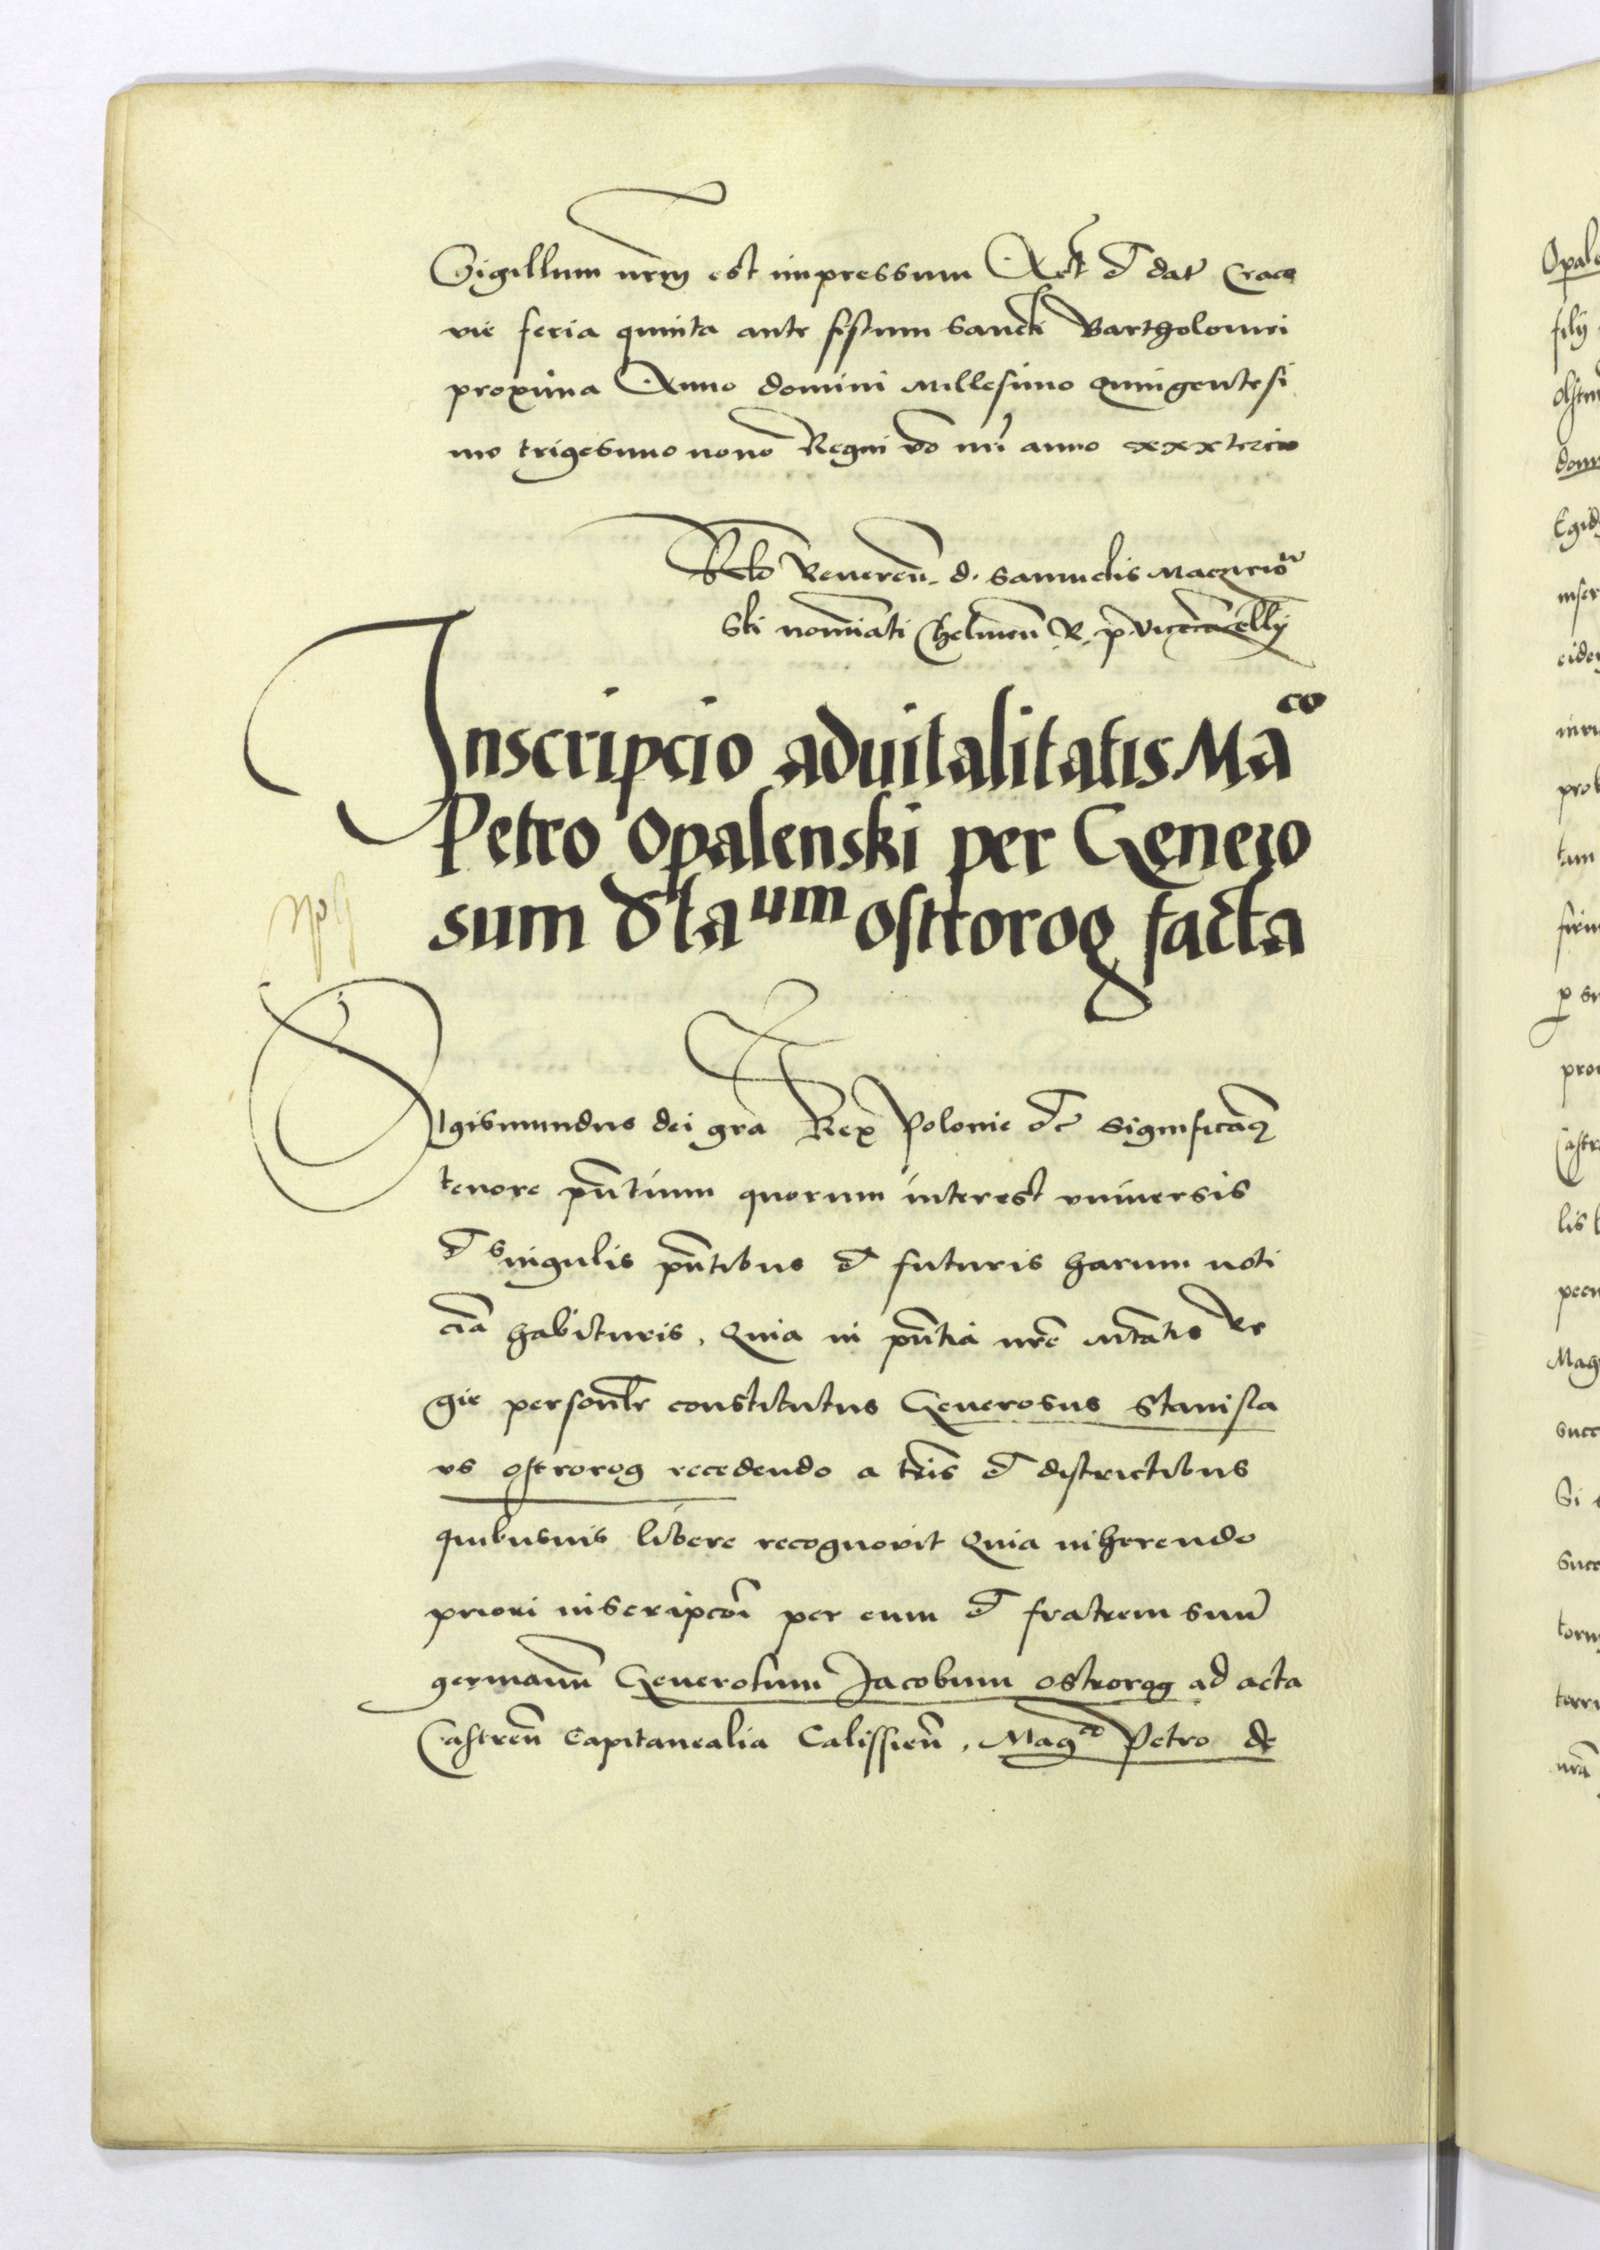 Sigillum nrm est impressum Act et dat Craco
vie feria quinta ante festum Sancti Bartholomei
proxima Anno domini Millesimo Quingentesi
mo trigesimo nono Regni vo nri anno xxxtercio
Relo Reveren. d. Samuelis Macziio
ski nominati Chelmen R. p. Vicecancellij
Inscripcio advitalitatis Maco
Petro Opalenski per Genero
sum Staum Osttorog facta
Sigismundus dei gra Rex Polonie etc Significam
tenore pntium quorum interest universis
et singulis pntibus et futuris harum noti
cia habituris, Quia in pntia nre Mtatis Re
gie personlr constitutus Generosus Stanisla
us Ostrorog recedendo a tris et districtibus
quibusvis libere recognovit Quia inherendo
priori inscripcoi per eum et fratrem suu
germanu Generosum Jacobum Ostrorog ad acta
Castren Capitanealia Calissien, Magco Petro de